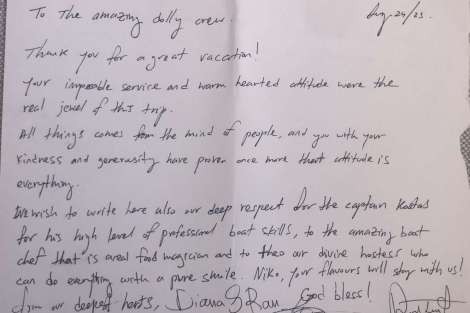 To the amazing dolly crew. Aug. 24/23.
Thank you for a great vaccation!
Your impecable service and warm hearted attitude were the
real jewel of this trip.
All things comes from the mind of people, and you with your
kindness and generusity have proven once more that attitude is
everything.
We wish to write here also our deep respect for the captain Kostas
for his high level of professional boat skills, to the amazing boat
chef that is areal food magician and to theo our divine hostess who
can do everything with a pure smile. Niko, your flavours will stay with us!
from our deepest harts, Diana & Ran God bless!